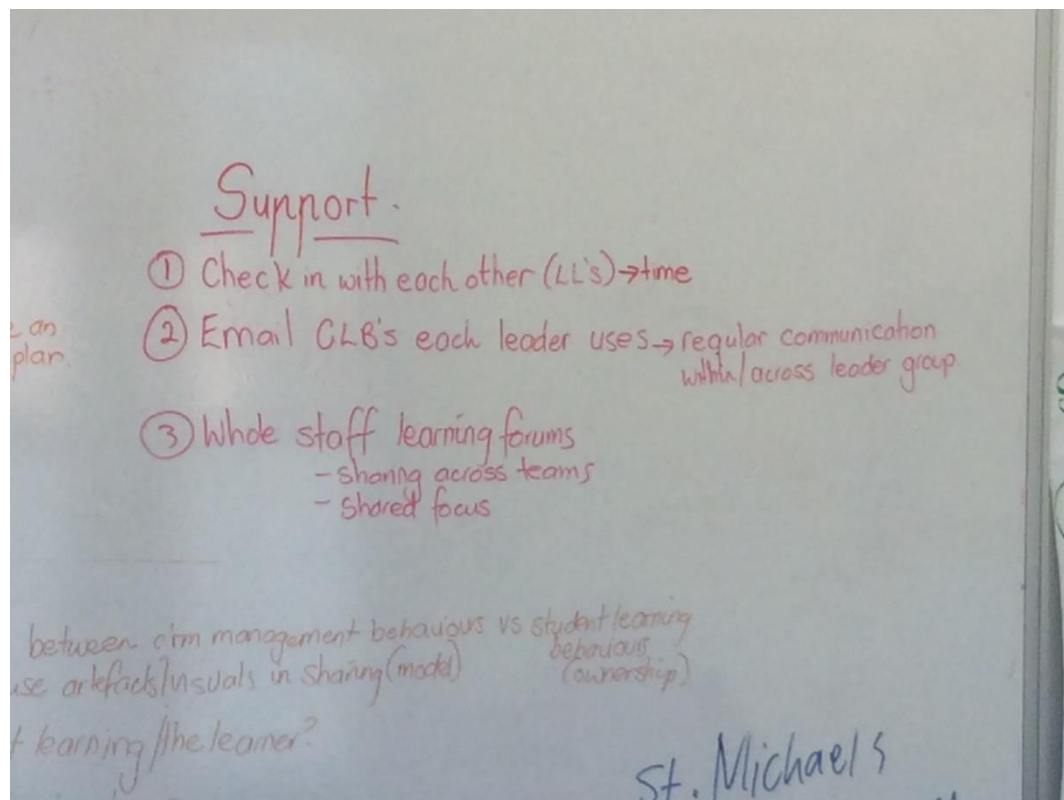 Support.
① Check in with each other (LL's)→time
② Email CLB's each leader uses→regular communication
within/across leader group.
an
plan.
③ Whole staff learning forums
- sharing across teams
- shared focus
between c/rm management behaviours vs student learning
behaviours
(ownership)
use artefacts/visuals in sharing (model)
learning/the learner?
St. Michaels